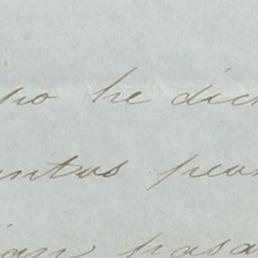 po he dich
untas pea
ian pasa